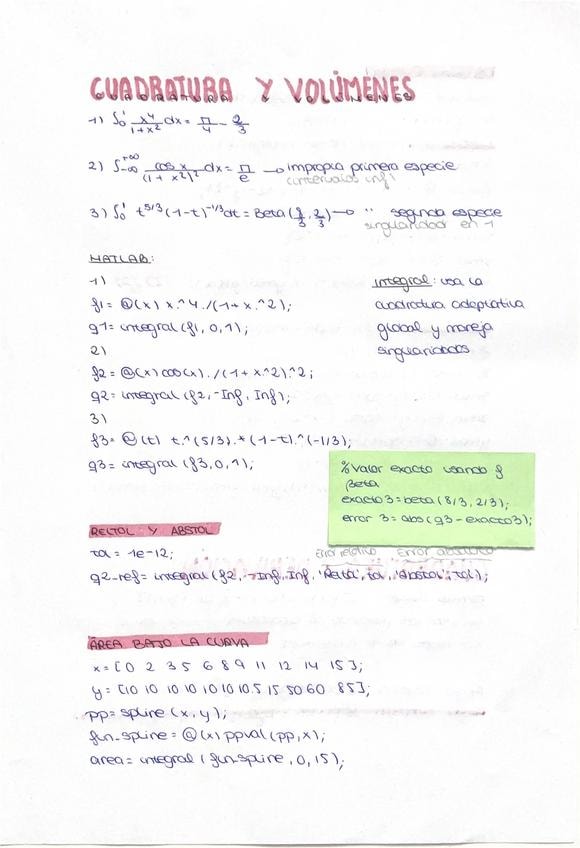 CUADRATURA Y VOLÚMENES
1) ∫₀¹ x⁴/(1+x²) dx = π/4 - 2/3
2) ∫₋∞⁺∞ cos x/(1+x²)² dx = π/e → impropia primera especie
(intervalos inf)
3) ∫₀¹ t^5/3 (1-t)^-1/3 dt = Beta(8/3, 2/3) → '' segunda especie
singularidad en 1
MATLAB:
1)
f1 = @(x) x.^4./(1+x.^2);
g1 = integral(f1, 0, 1);
2)
f2 = @(x) cos(x)./(1+x.^2).^2;
g2 = integral(f2, -Inf, Inf);
3)
f3 = @(t) t.^(5/3).*(1-t).^(-1/3);
g3 = integral(f3, 0, 1);
integral: usa la
cuadratura adaptativa
global y maneja
singularidades
% Valor exacto usando f
Beta
exacto3 = beta(8/3, 2/3);
error 3 = abs(g3-exacto3);
RELTOL Y ABSTOL
tol = 1e-12;
Error relativo Error absoluto
g2_ref = integral(f2, -Inf, Inf, 'RelTol', tol, 'AbsTol', tol);
ÁREA BAJO LA CURVA
x = [0 2 3 5 6 8 9 11 12 14 15];
y = [10 10 10 10 10 10 10.5 15 50 60 85];
pp = spline(x, y);
fun_spline = @(x) ppval(pp, x);
area = integral(fun_spline, 0, 15);